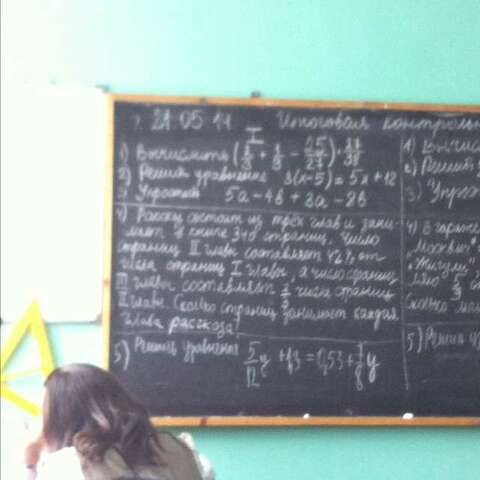 21.05.14 Итоговая контроль
I
1) Вычислить
2) Решить уравнение 3(x-5) = 5x + 12
3) Упростить 5a - 4b + 3a - 2b
4) Рассказ состоит из трёх глав и зани-
мает в книге 340 страниц. Число
страниц II главы составляет 42% от
числа страниц I главы, а число страниц
III главы составляет 2/3 числа страниц
II главы. Сколько страниц занимает каждая
глава рассказа?
5) Решить уравнение 5/12 y + 1,3 = 0,53 + 7/8 y
1) Вычисл
2) Решить
3) Упро
4) В гараже
"Москвич"
"Жигули"
сколько ма
5) Решить ур